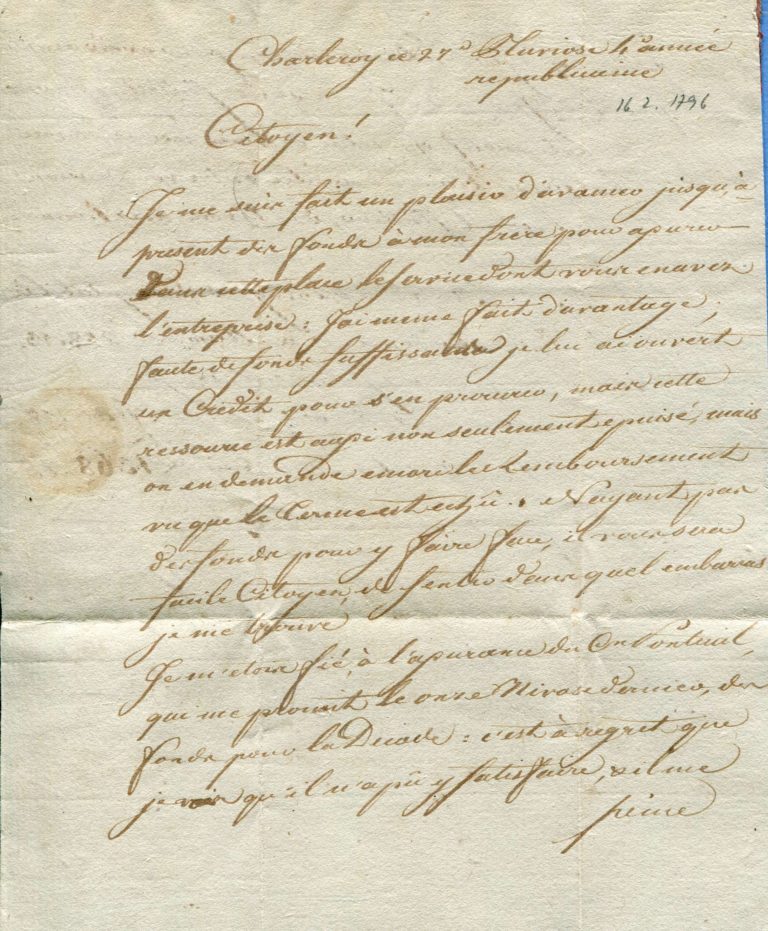 Charleroy ce 27e Pluviose 4e année
republicaine
16 2. 1796
Citoyen!
Je me suis fait un plaisir d'avancer jusqu'à
present des fonds à mon frère pour apurer
dans cette place le service dont vous en avez
l'entreprise: J'ai meme fait d'avantage;
faute de fonds suffissants je lui ai ouvert
un Credit pour s'en procurer, mais cette
ressource est aussi non seulement epuisé, mais
on en demande encore le Remboursement
vu que le Terme est echû. N'ayant pas
des fonds pour y faire face, il vous sera
facile Citoyen, de sentir dans quel embarras
je me trouve
Je m'etois fié à l'apurance du Cn
qui me promit le onze Nivose dernier, des
fonds pour la Decade: c'est à regret que
je vois qu'il n'a pû y satisfaire, & il me
peine